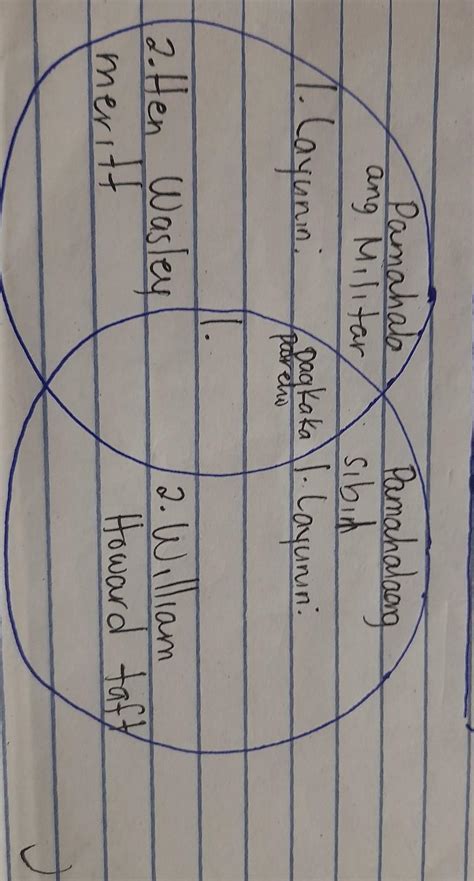 Pamahala
ang Militar
1. Layunin:
2. Hen Wasley
meritt
pagkaka
pareho
1.
Pamahalaang
sibil
1. Layunin:
2. William
Howard taft